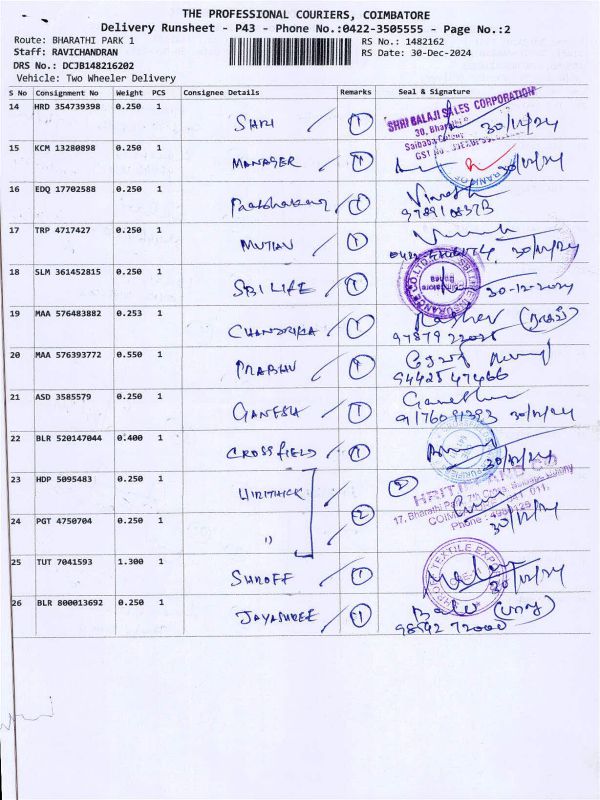 THE PROFESSIONAL COURIERS, COIMBATORE
Delivery Runsheet - P43 - Phone No.:0422-3505555 - Page No.:2
Route: BHARATHI PARK 1 RS No.: 1482162
Staff: RAVICHANDRAN RS Date: 30-Dec-2024
DRS No.: DCJB148216202
Vehicle: Two Wheeler Delivery
S No Consignment No Weight PCS Consignee Details Remarks Seal & Signature
14 HRD 354739398 0.250 1 SHRI 1 SHRI BALAJI SALES CORPORATION
30, Bharathi
Saibaba Colony
GST No 30/12/24
15 KCM 13280898 0.250 1 MANAGER 1 30/12/24
16 EDQ 17702588 0.250 1 Prabhakar 1 Vinesh
17 TRP 4717427 0.250 1 1 30/12/24
18 SLM 361452815 0.250 1 SBI LIFE 1 SBI LIFE INSURANCE CO. LTD
Coimbatore
30-12-2024
19 MAA 576483882 0.253 1 CHANDRIKA 1
97879 22025
20 MAA 576393772 0.550 1 PRABHU 1
94425 47466
21 ASD 3585579 0.250 1 GANESH 1 Ganesh
9176091393 30/12/24
22 BLR 520147044 0.400 1 CROSSFIELD 1 30/12/24
23 HDP 5095483 0.250 1 HRITHICK 2 HRITHIK AND CO
17, Bharathi Park 7th Cross, Saibaba Colony
24 PGT 4750704 0.250 1 " 2 COIMBATORE - 641 011.
Phone : 30/12/24
25 TUT 7041593 1.300 1 SHROFF 1 TEXTILE EXPO
30/12/24
26 BLR 800013692 0.250 1 JAYASHREE 1 Balu (பாலு)
98942 72000